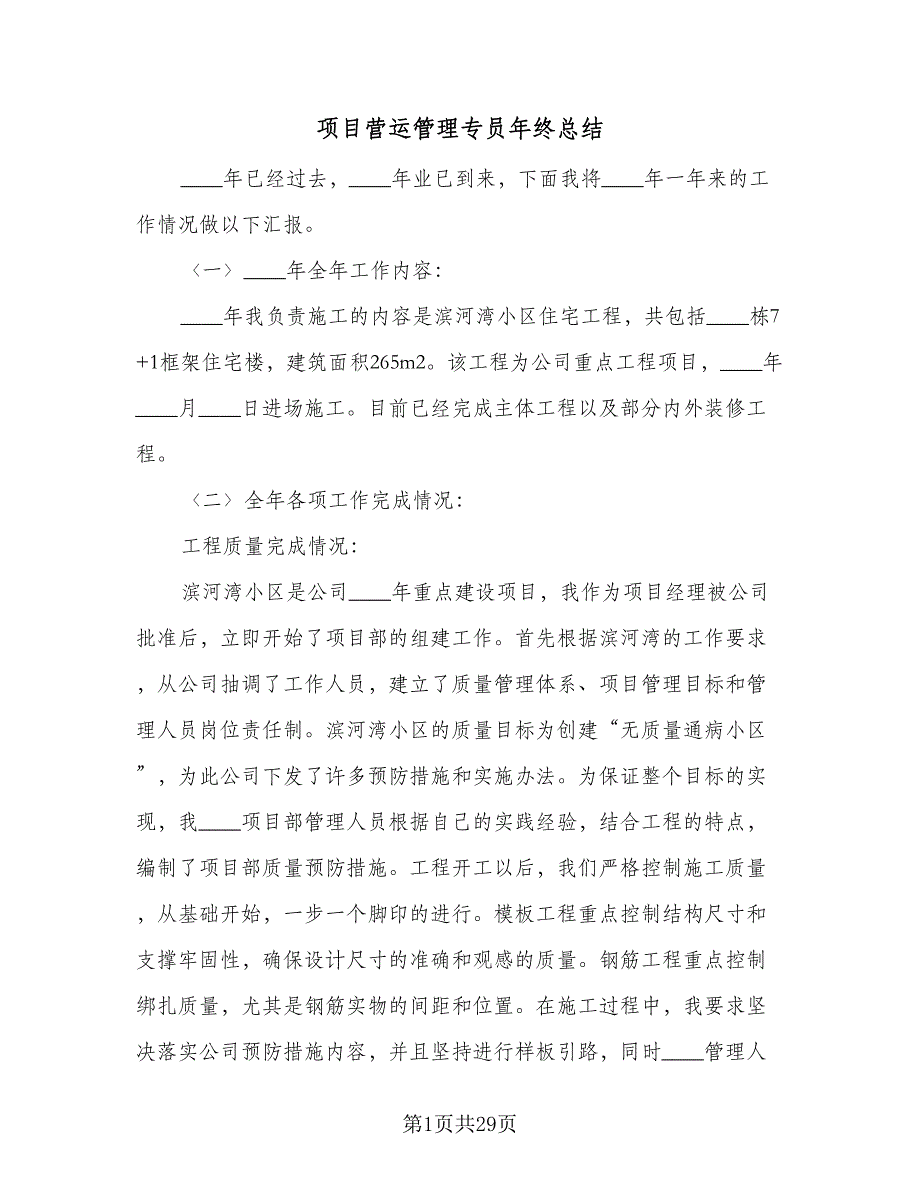 项目营运管理专员年终总结
____年已经过去，____年业已到来，下面我将____年一年来的工
作情况做以下汇报。
〈一〉____年全年工作内容：
____年我负责施工的内容是滨河湾小区住宅工程，共包括____栋7
+1框架住宅楼，建筑面积265m2。该工程为公司重点工程项目，____年
____月____日进场施工。目前已经完成主体工程以及部分内外装修工
程。
〈二〉全年各项工作完成情况：
工程质量完成情况：
滨河湾小区是公司____年重点建设项目，我作为项目经理被公司
批准后，立即开始了项目部的组建工作。首先根据滨河湾的工作要求
，从公司抽调了工作人员，建立了质量管理体系、项目管理目标和管
理人员岗位责任制。滨河湾小区的质量目标为创建“无质量通病小区
”，为此公司下发了许多预防措施和实施办法。为保证整个目标的实
现，我____项目部管理人员根据自己的实践经验，结合工程的特点，
编制了项目部质量预防措施。工程开工以后，我们严格控制施工质量
，从基础开始，一步一个脚印的进行。模板工程重点控制结构尺寸和
支撑牢固性，确保设计尺寸的准确和观感的质量。钢筋工程重点控制
绑扎质量，尤其是钢筋实物的间距和位置。在施工过程中，我要求坚
决落实公司预防措施内容，并且坚持进行样板引路，同时____管理人
第1页共29页